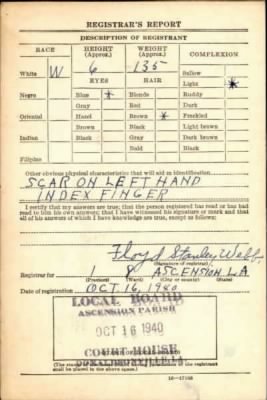 REGISTRAR'S REPORT
DESCRIPTION OF REGISTRANT
RACE HEIGHT (Approx.) WEIGHT (Approx.) COMPLEXION
White W 6 135 Sallow
EYES HAIR Light *
Negro Blue * Blonde Ruddy
Gray Red Dark
Oriental Hazel Brown * Freckled
Brown Black Light brown
Indian Black Gray Dark brown
Bald Black
Filipino
Other obvious physical characteristics that will aid in identification
SCAR ON LEFT HAND
INDEX FINGER
I certify that my answers are true; that the person registered has read or has
had read to him his own answers; that I have witnessed his signature or mark and that
all of his answers of which I have knowledge are true, except as follows:
Floyd Stanley Webb
(Signature of registrar)
Registrar for 1 8 ASCENSION LA
(Precinct) (Ward) (City or county) (State)
Date of registration OCT. 16, 1940
LOCAL BOARD
ASCENSION PARISH
OCT 16 1940
COURT HOUSE
DONALDSONVILLE, LA
shall be placed in the above space.)
16-17105